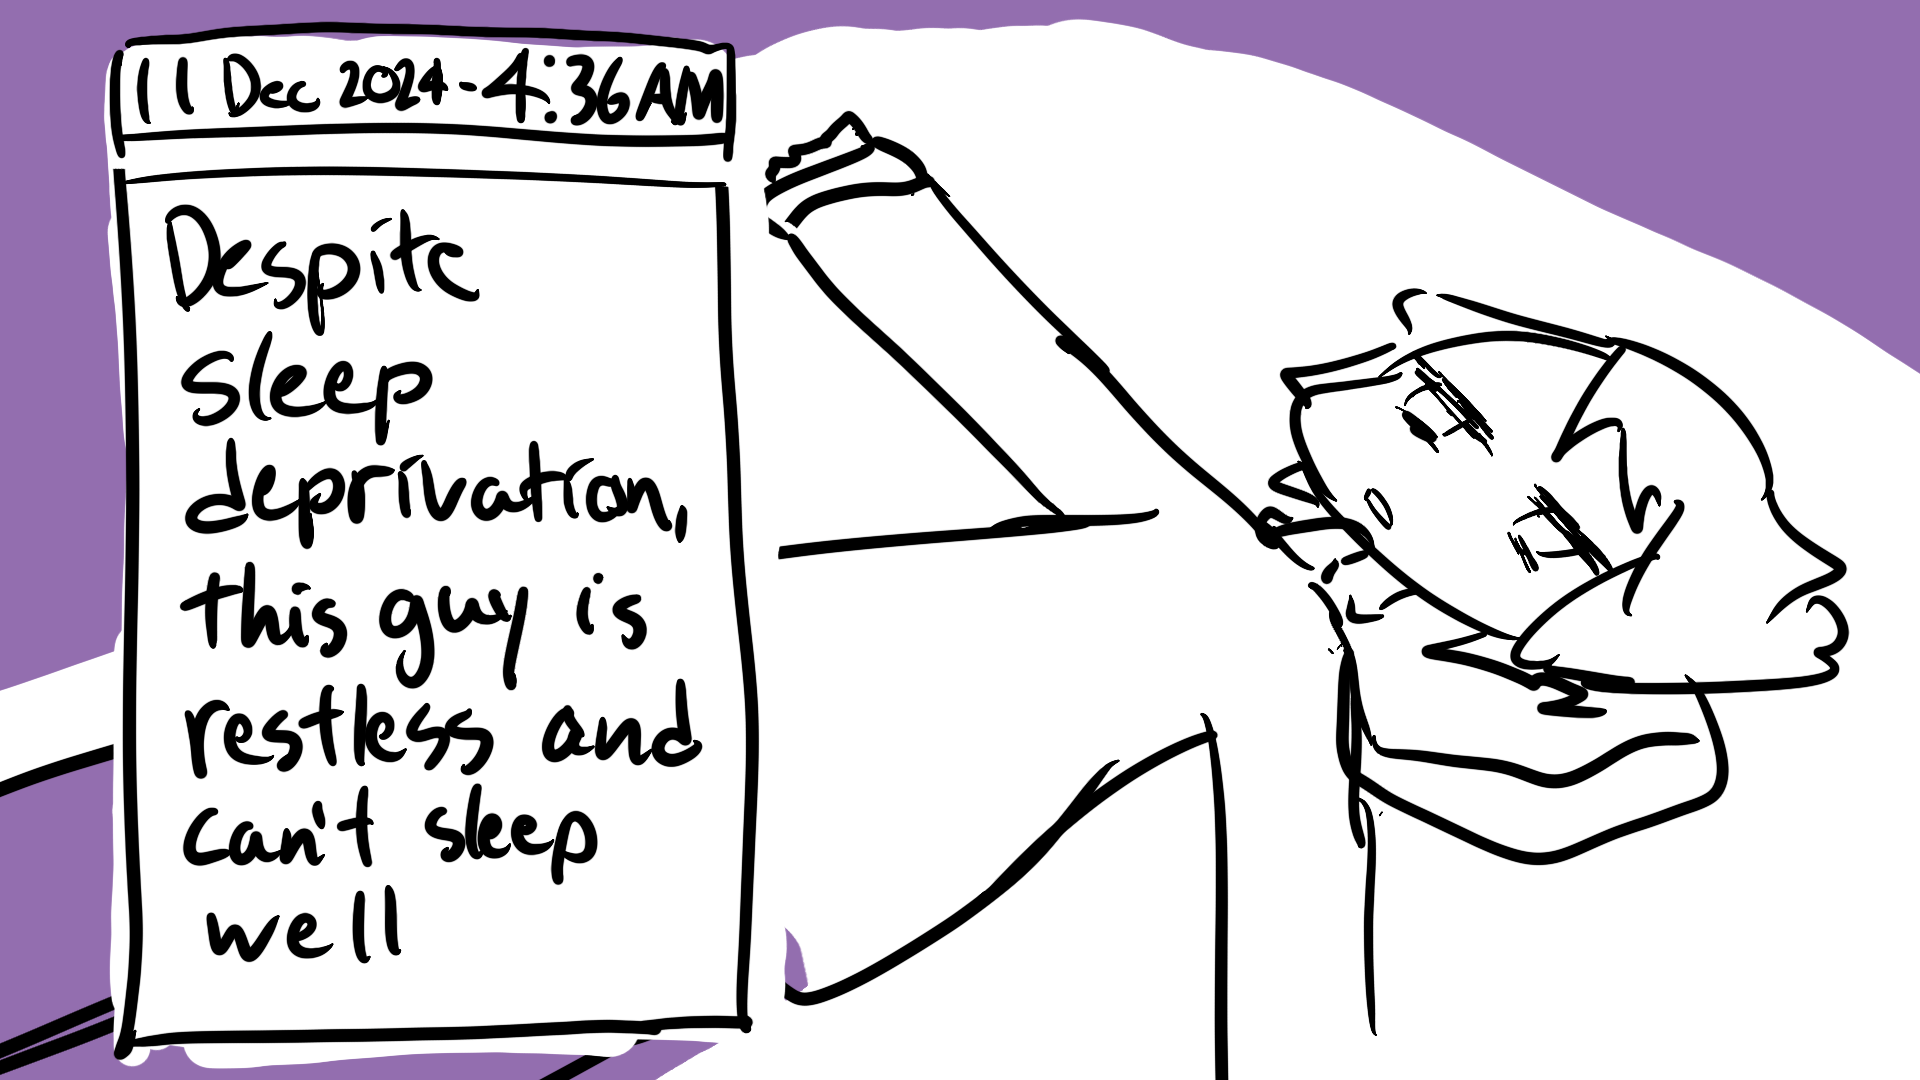 11 Dec 2024 - 4:36AM
Despite
sleep
deprivation,
this guy is
restless and
can't sleep
well